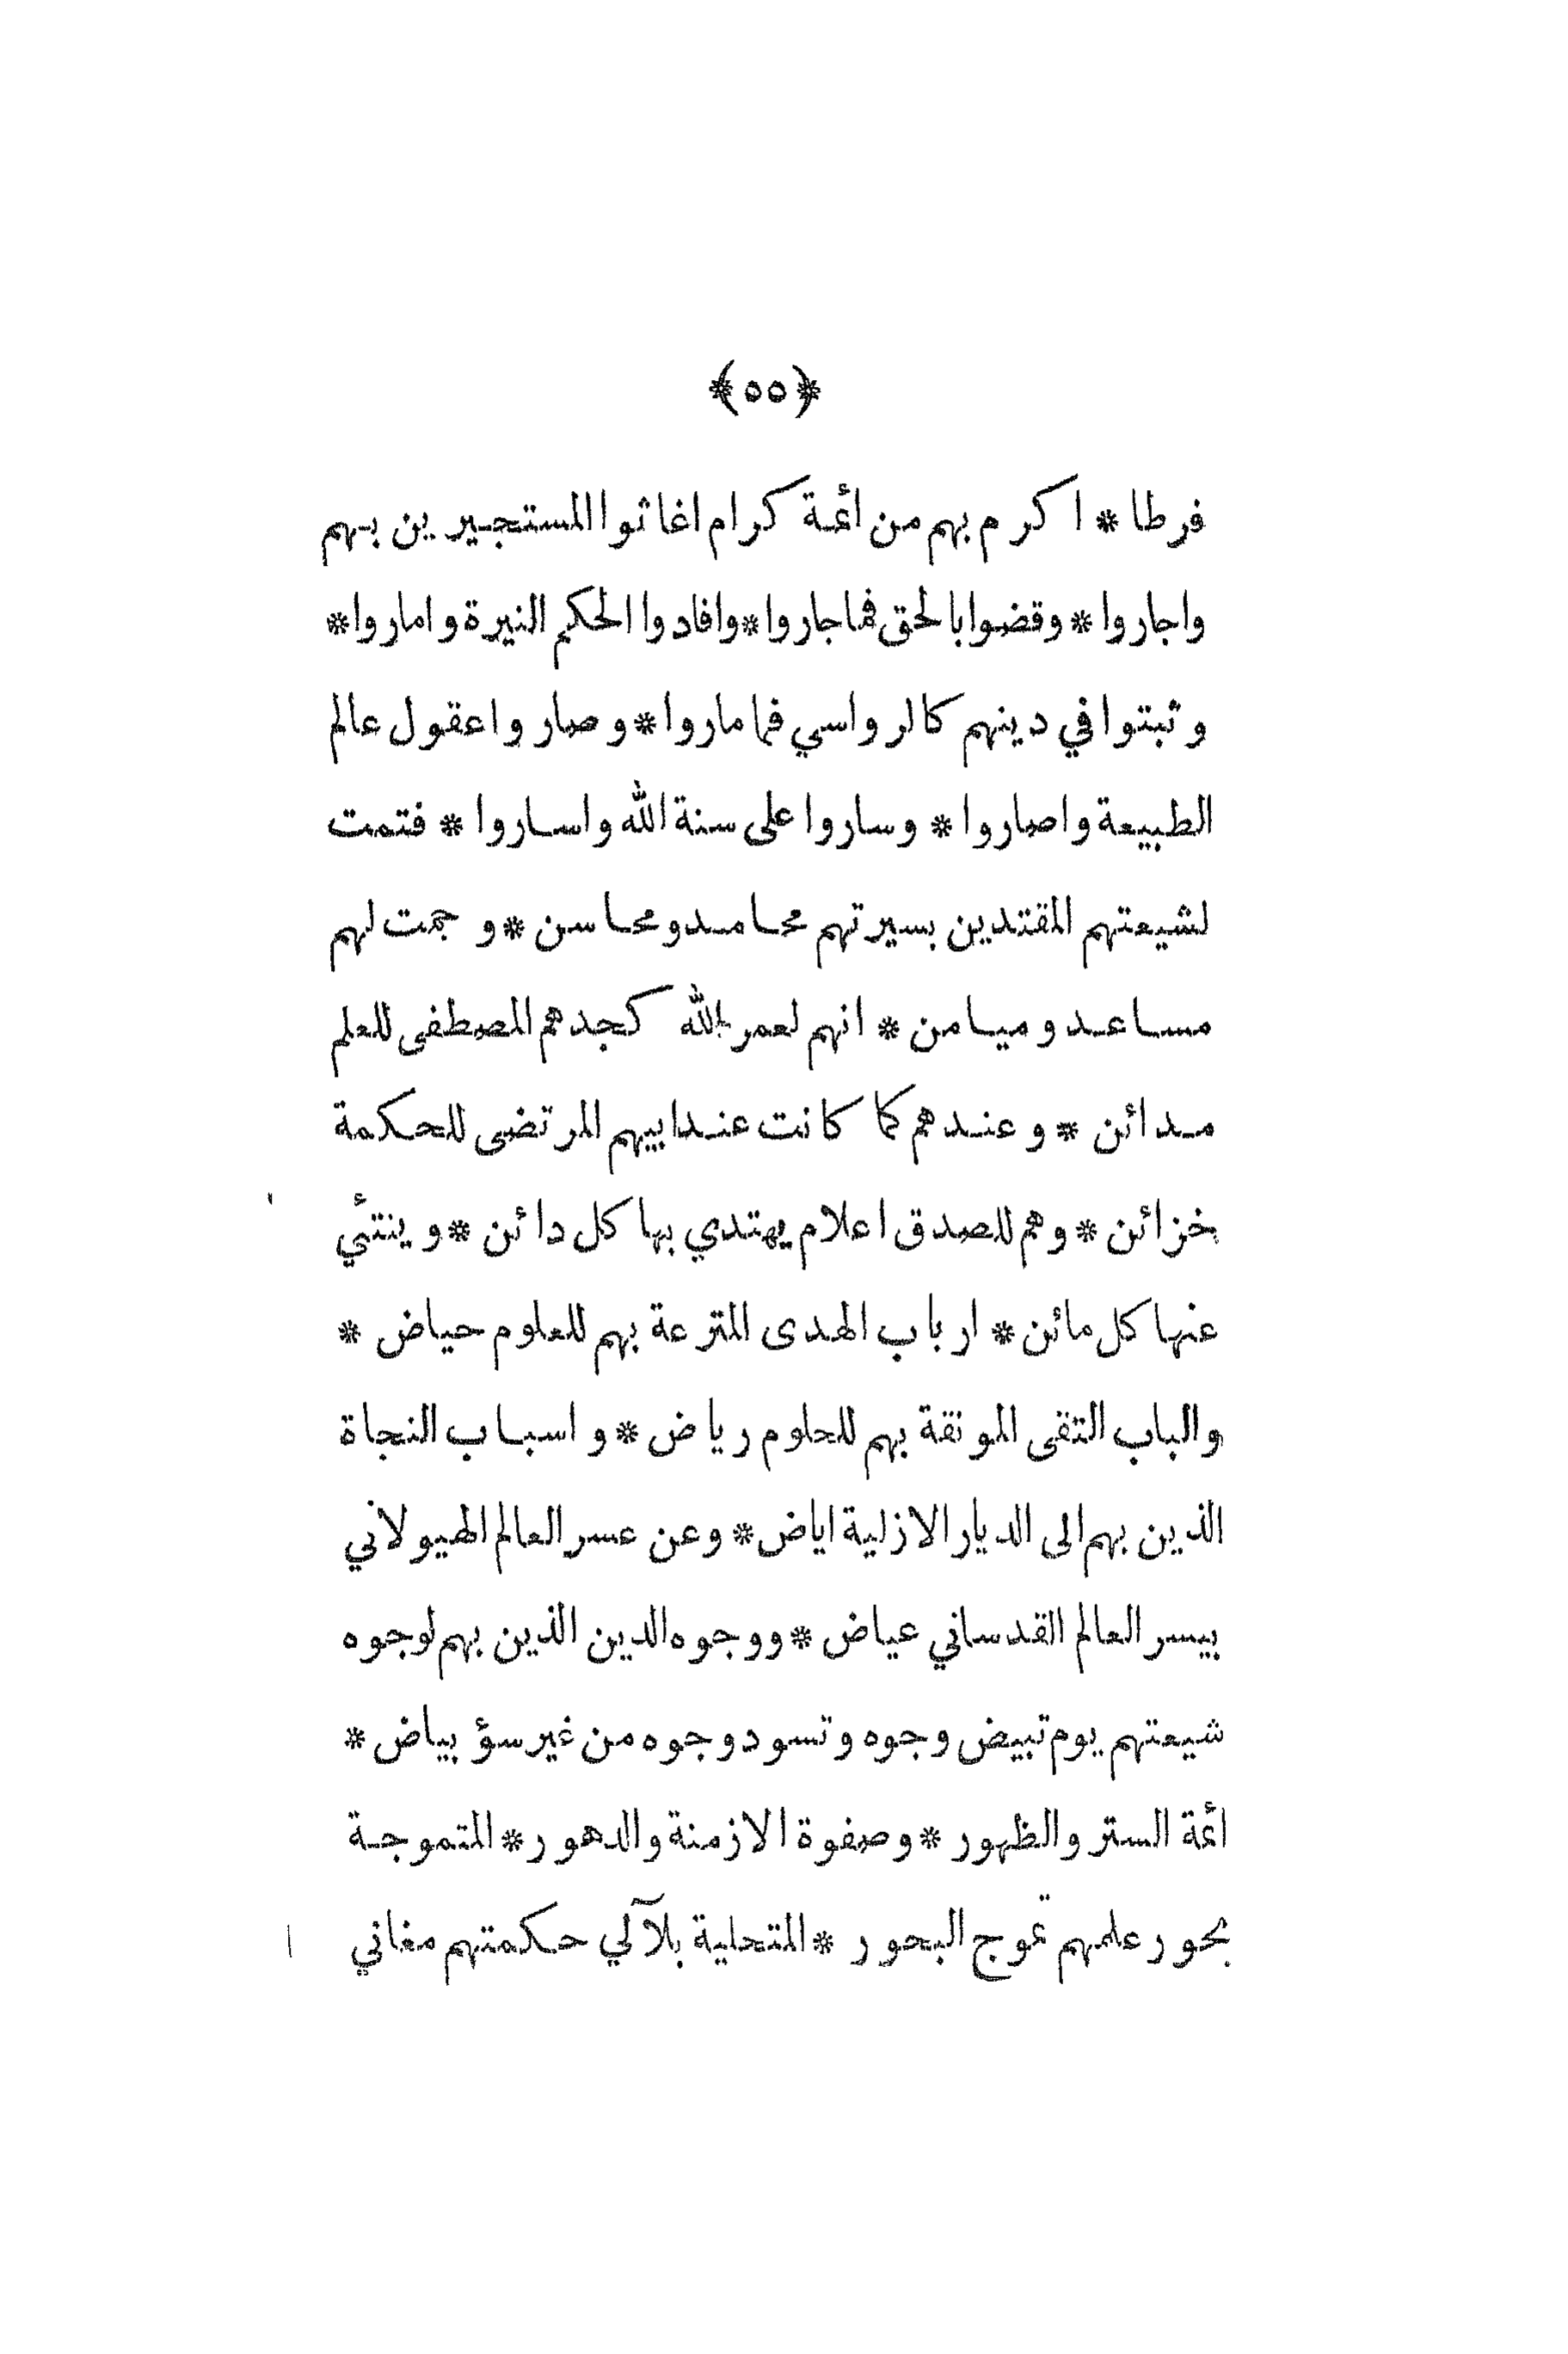 ﴿٥٥﴾
فرطا * اكرم بهم من ائمة كرام اغاثوا المستجيرين بهم
واجاروا * وقضوا بالحق فما جاروا * وافادوا الحكم النيرة واماروا *
وثبتوا في دينهم كالرواسي فما ماروا * وصاروا عقول عالم
الطبيعة واصاروا * وساروا على سنة الله واساروا * فتمت
لشيعتهم المقتدين بسيرتهم محامد ومحاسن * وجمت لهم
مساعد وميامن * انهم لعمر الله كجدهم المصطفى للعلم
مدائن * وعندهم كما كانت عند ابيهم المرتضى للحكمة
خزائن * وهم للصدق اعلام يهتدي بها كل دائن * وينتئي
عنها كل مائن * ارباب الهدى المترعة بهم للعلوم حياض *
والباب التقى المونقة بهم للحلوم رياض * واسباب النجاة
الذين بهم الى الديار الازلية اياض * وعن عسر العالم الهيولاني
بيسر العالم القدساني عياض * ووجوه الدين الذين بهم لوجوه
شيعتهم يوم تبيض وجوه وتسود وجوه من غير سؤ بياض *
ائمة الستر والظهور * وصفوة الازمنة والدهور * المتموجة
بحور علمهم تموج البحور * المتحلية بلآلي حكمتهم مغاني